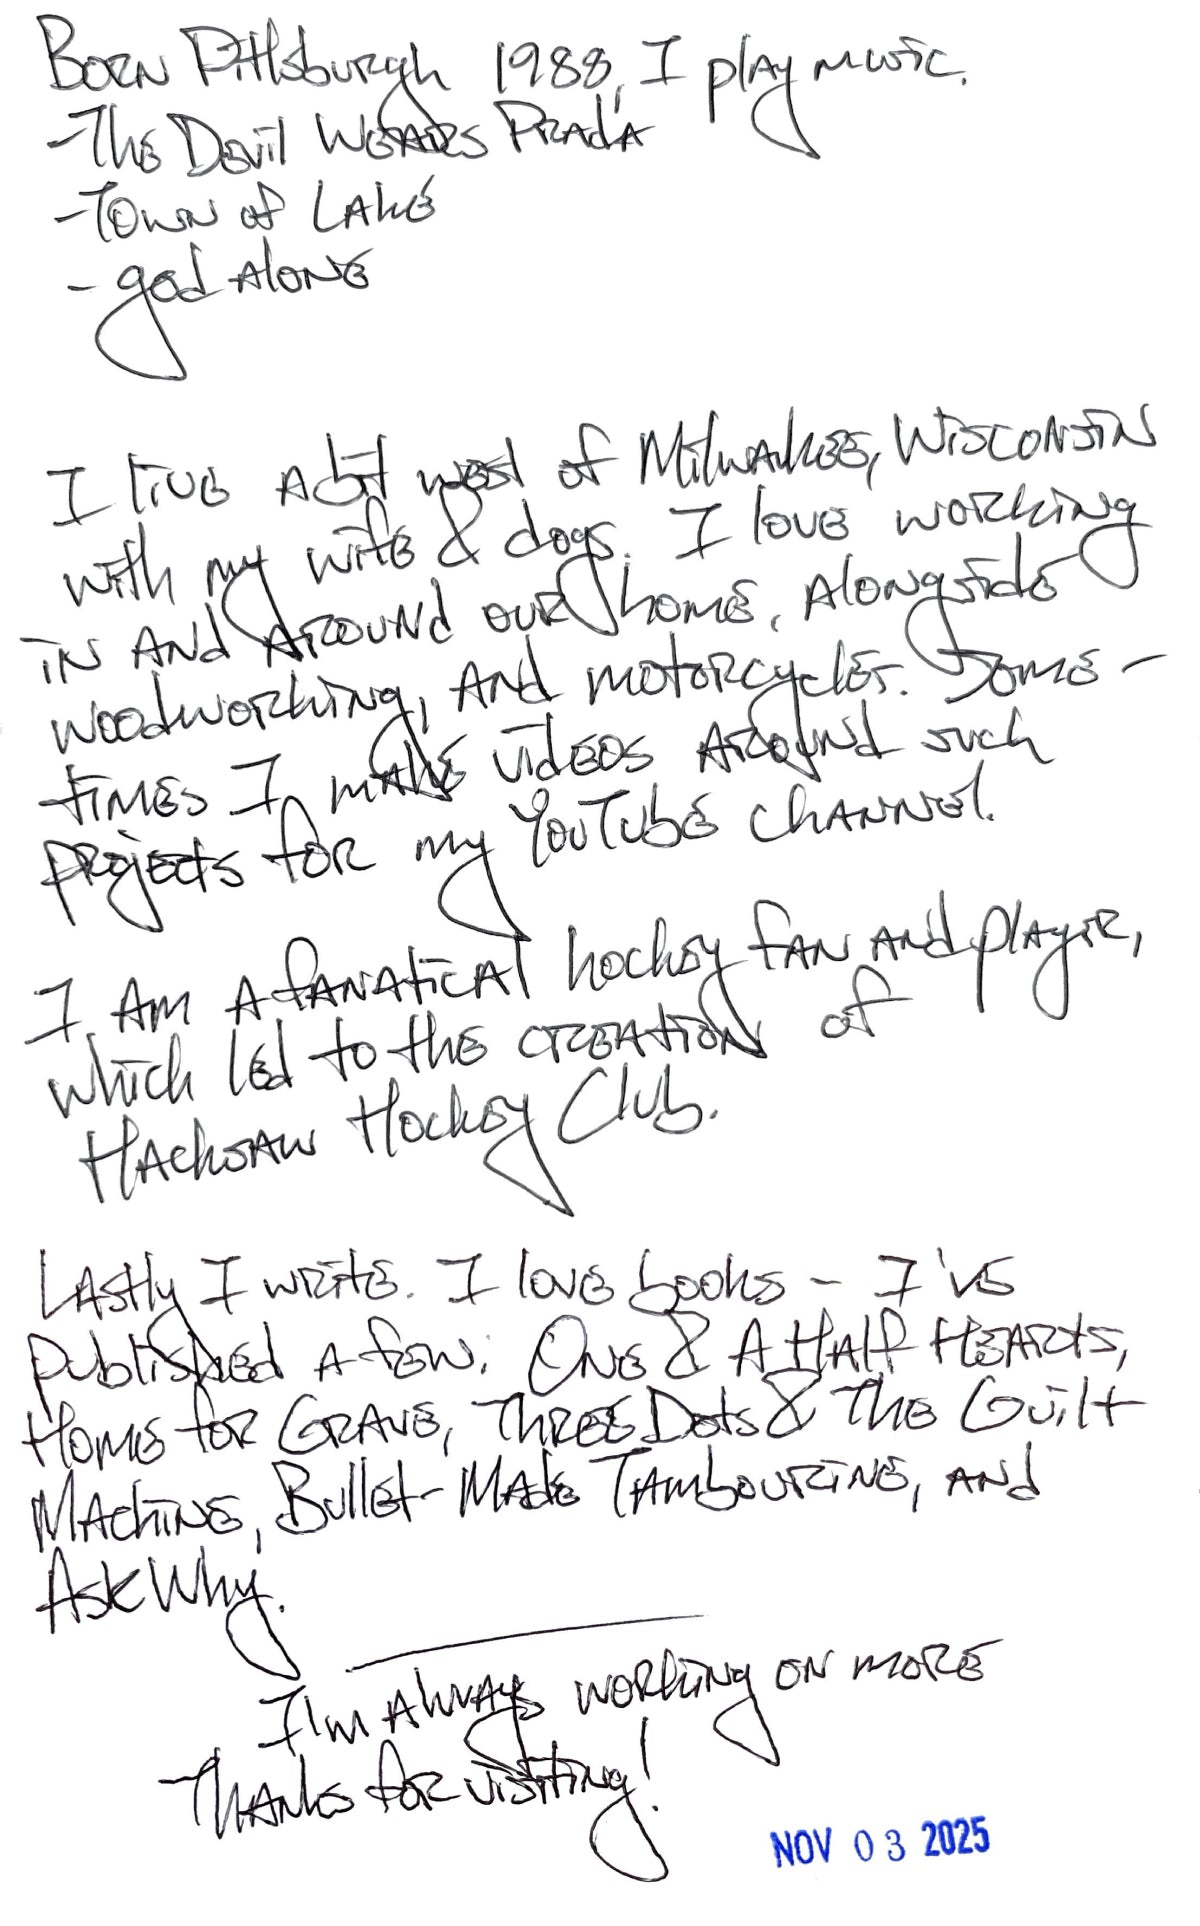 Born Pittsburgh 1988, I play music.
- The Devil Wears Prada
- Town of Lake
- god alone
I live a bit west of Milwaukee, Wisconsin
with my wife & dogs. I love working
in and around our home, alongside
woodworking, and motorcycles. Some-
times I make videos around such
projects for my YouTube channel.
I am a fanatical hockey fan and player,
which led to the creation of
Hacksaw Hockey Club.
Lastly I write. I love books - I've
published a few: One & A Half Hearts,
Home for Grave, Three Dots & The Guilt
Machine, Bullet-Made Tambourine, and
Ask Why.
I'm always working on more
Thanks for visiting!
NOV 03 2025